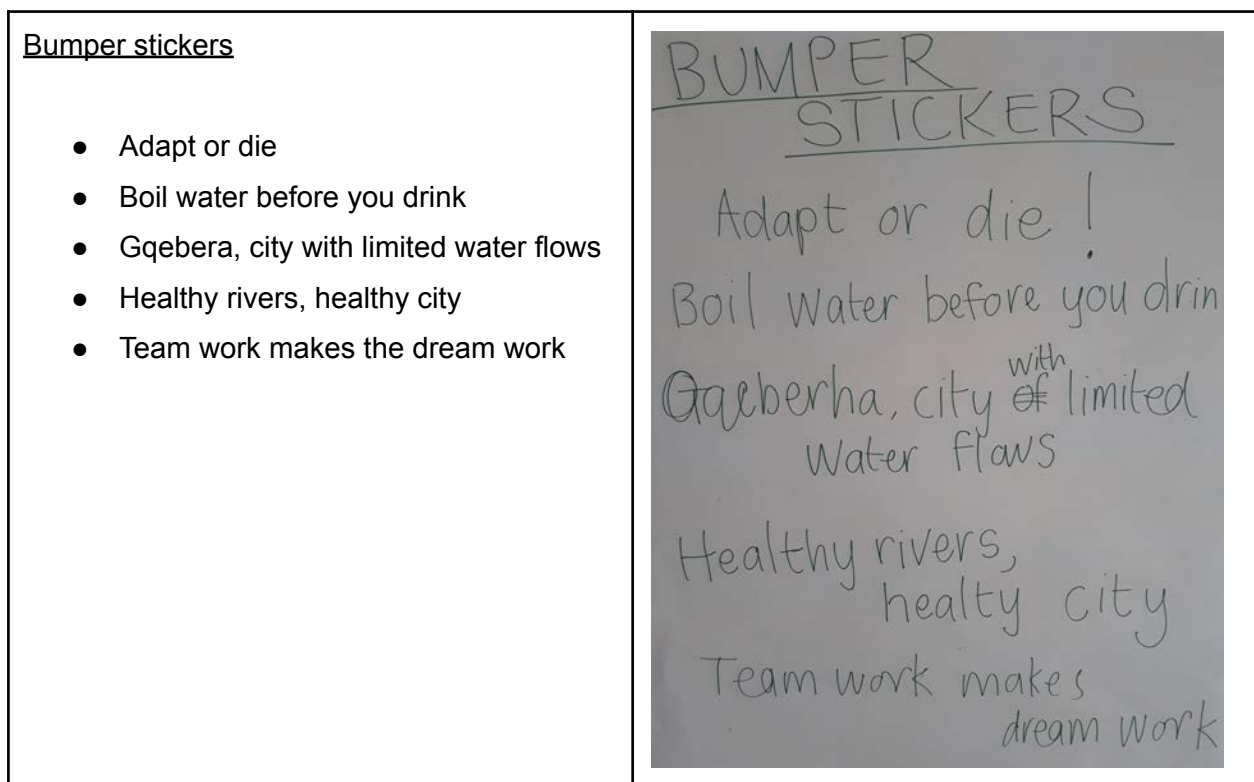 Bumper stickers
● Adapt or die
● Boil water before you drink
● Gqebera, city with limited water flows
● Healthy rivers, healthy city
● Team work makes the dream work
BUMPER
STICKERS
Adapt or die !
Boil water before you drin
Gqeberha, city of with limited
Water flows
Healthy rivers,
healty city
Team work makes
dream work